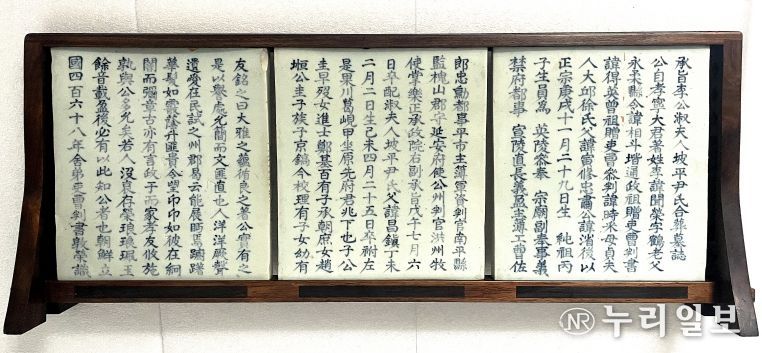 承旨李公淑夫人坡平尹氏合葬墓誌
公自孝寧大君著姓李諱閒榮字鶴老父
永柔縣令諱相斗階通政祖贈吏曹判書
諱得英曾祖贈吏曹參判諱時采母貞夫
人大邱徐氏父諱宙修忠肅公諱渻後以
正宗庚戌十一月二十九日生 純祖丙
子生員爲 英陵參奉 宗廟副奉事義
禁府都事 宣陵直長義盈主簿工曹佐
郎忠勳都事平市主簿軍資判官南平縣
監槐山郡守延安府使公州判官洪州牧
使掌樂正承政院右副承旨戊午七月六
日卒配淑夫人坡平尹氏父諱昌鎭丁未
二月二日生己未四月二十五日卒祔左
是果川葛峴甲坐原先府君兆下也子公
圭早歿女進士鄭基百有子承朝庶女趙
垣公圭子族子京鎬今校理有子女幼有
友銘之曰大雅之 循良之著公實有之
是以譽處允簡而文匪直也人洋洋厥聲
遺愛在民試之州郡易云能展 馬踽躇
華髮如雲蔭升匪貴令望卬卬如彼在絅
闇而彌章古亦有言政于而家孝友攸施
孰與公多允矣若人沒良存榮琅琅珮玉
餘音載盈後必有以此知公者也朝鮮立
國四百六十八年舍弟吏曹判書敦榮識
누리일보